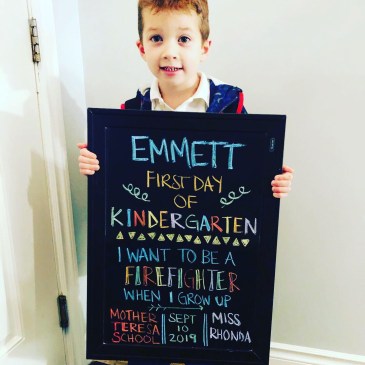 EMMETT
FIRST DAY
OF
KINDERGARTEN
I WANT TO BE A
FIREFIGHTER
WHEN I GROW UP
MOTHER
TERESA
SCHOOL
SEPT
10
2019
MISS
RHONDA